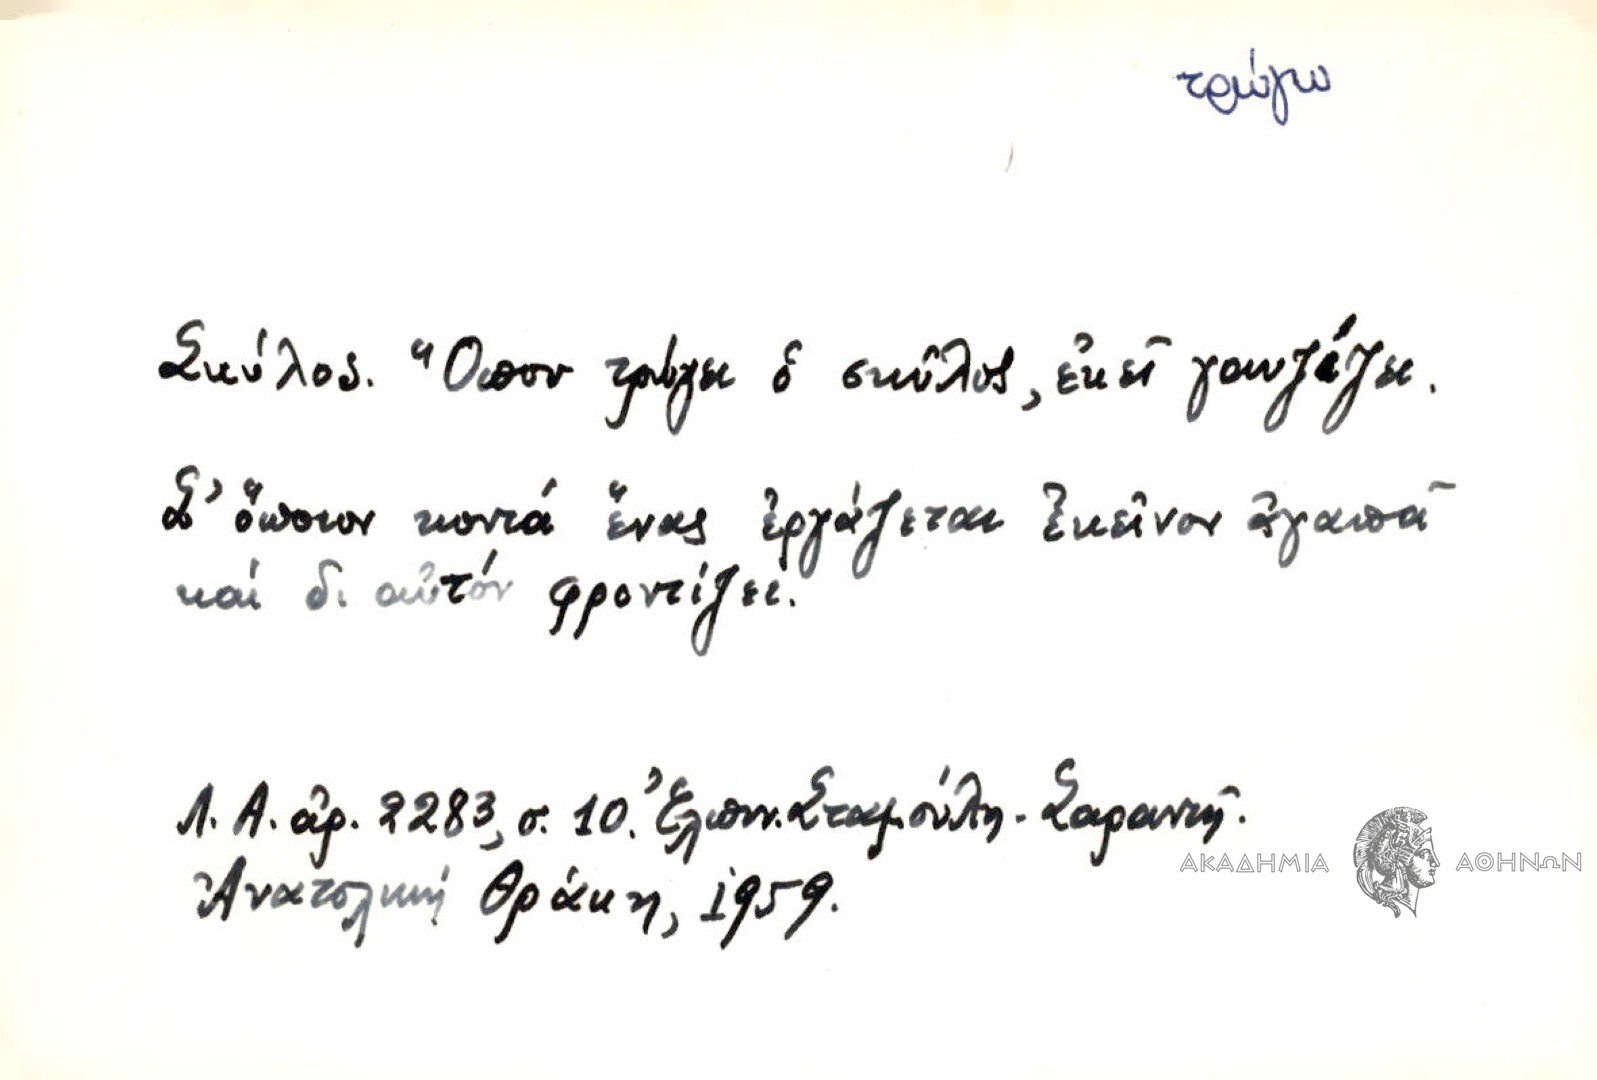 τρώγω
Σκύλος. Ὅπου τρώγει ὁ σκύλος, ἐκεῖ γαυγάζει.
Σ' ὅποιον κοντά ἕνας ἐργάζεται ἐκεῖνον ἀγαπᾶ
καί δι αὐτόν φροντίζει.
Λ. Α. ἀρ. 2283, σ. 10. Ἐλπιν. Σταμούλη - Σαραντῆ.
Ἀνατολική Θράκη, 1959.
ΑΚΑΔΗΜΙΑ ΑΘΗΝΩΝ